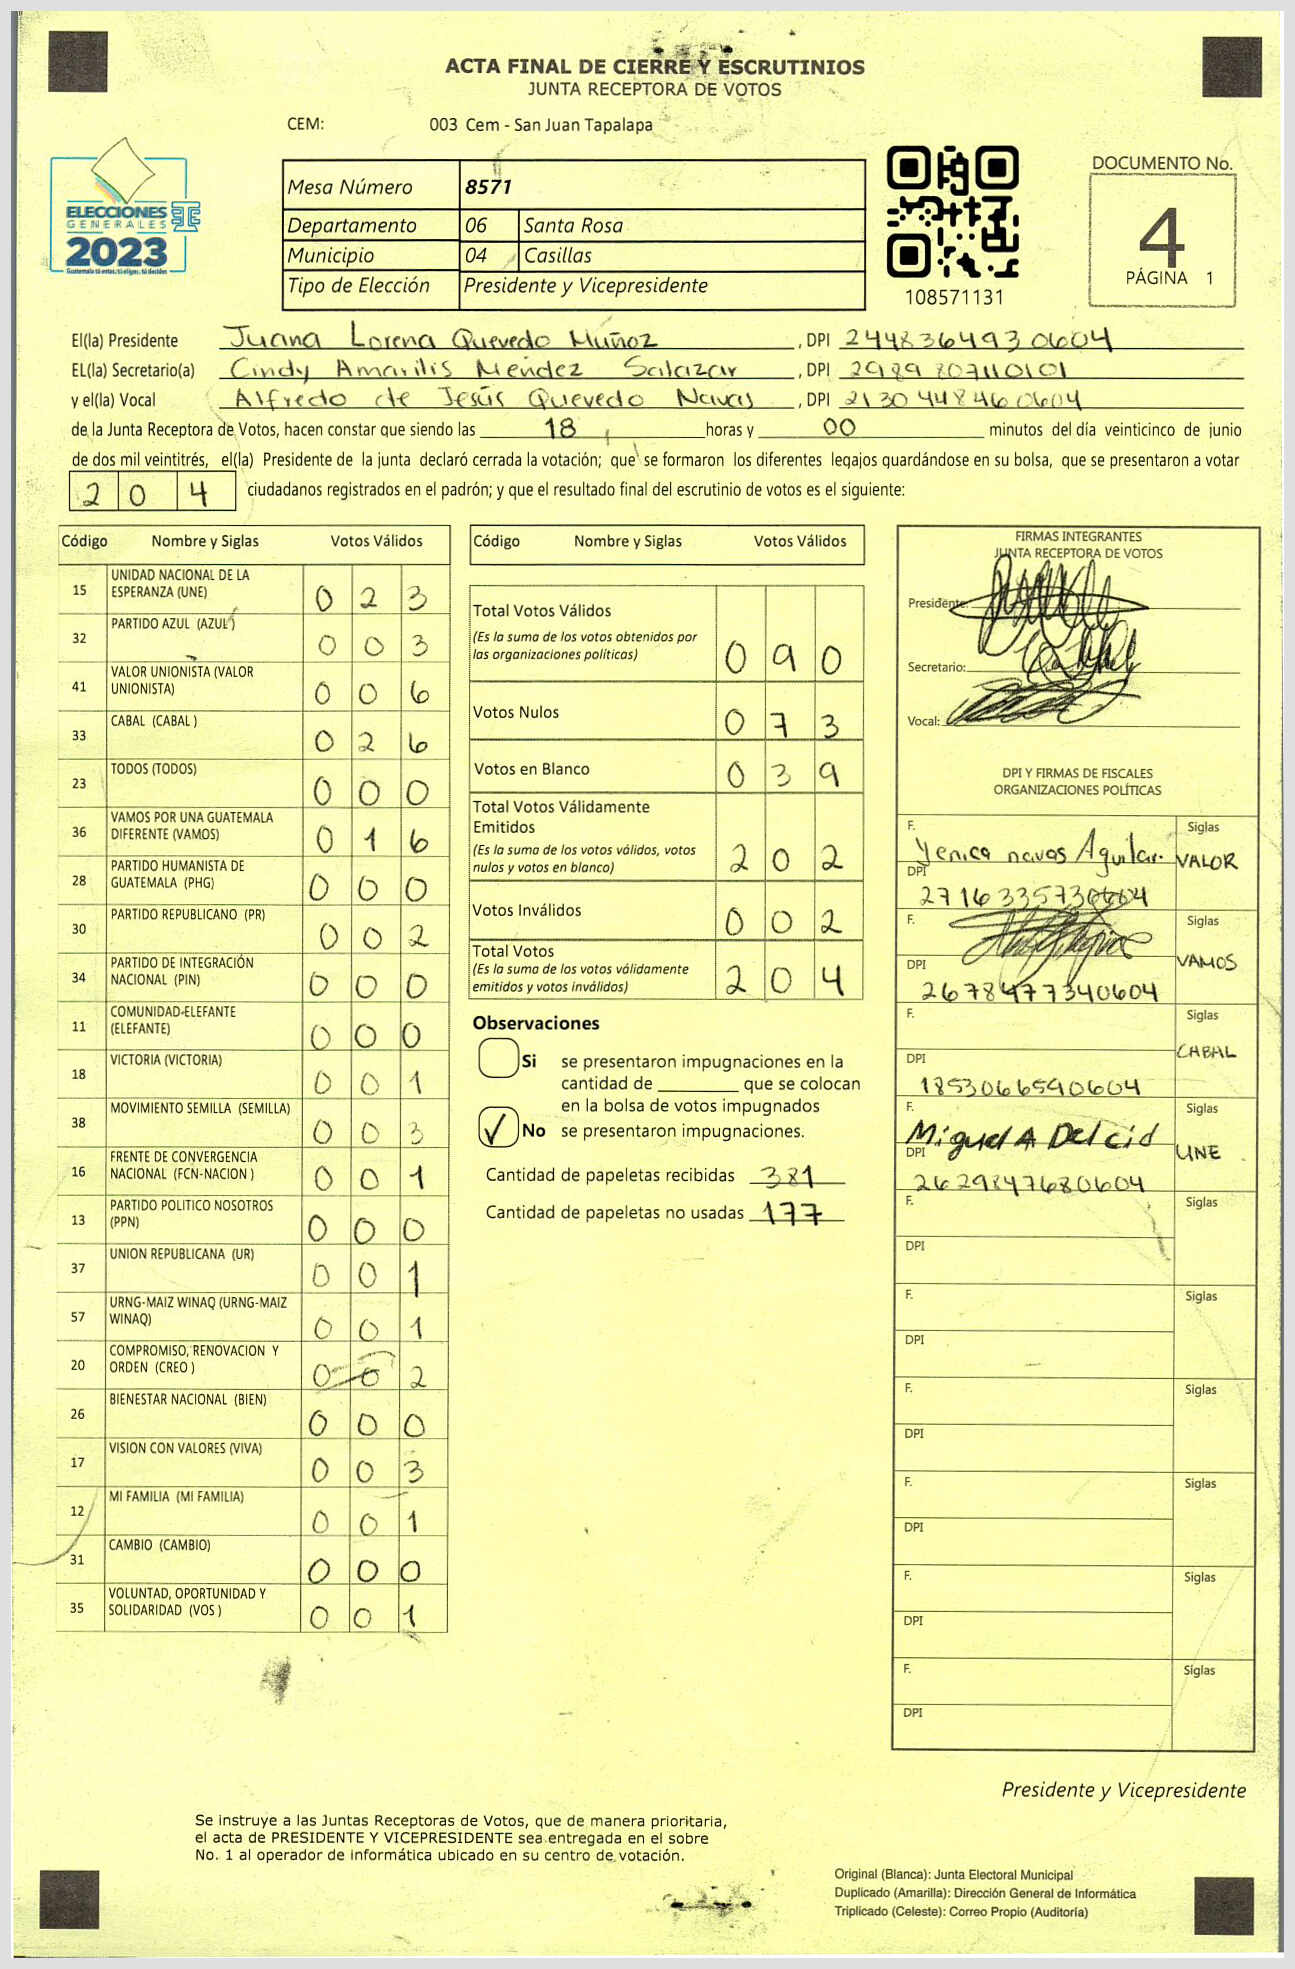 ACTA FINAL DE CIERRE Y ESCRUTINIOS
JUNTA RECEPTORA DE VOTOS
CEM: 003 Cem - San Juan Tapalapa
ELECCIONES
GENERALES
2023
Guatemala tú estas, tú eliges, tú decides
Mesa Número 8571
Departamento 06 Santa Rosa
Municipio 04 Casillas
Tipo de Elección Presidente y Vicepresidente
108571131
DOCUMENTO No.
4
PÁGINA 1
El(la) Presidente Juana Lorena Quevedo Muñoz , DPI 2448364930604
EL(la) Secretario(a) Cindy Amarilis Méndez Salazar , DPI 2989807110101
y el(la) Vocal Alfredo de Jesús Quevedo Navas , DPI 2130448460604
de la Junta Receptora de Votos, hacen constar que siendo las 18 horas y 00 minutos del día veinticinco de junio
de dos mil veintitrés, el(la) Presidente de la junta declaró cerrada la votación; que se formaron los diferentes legajos guardándose en su bolsa, que se presentaron a votar
204 ciudadanos registrados en el padrón; y que el resultado final del escrutinio de votos es el siguiente:
Código Nombre y Siglas Votos Válidos
15 UNIDAD NACIONAL DE LA ESPERANZA (UNE) 023
32 PARTIDO AZUL (AZUL) 003
41 VALOR UNIONISTA (VALOR UNIONISTA) 006
33 CABAL (CABAL ) 026
23 TODOS (TODOS) 000
36 VAMOS POR UNA GUATEMALA DIFERENTE (VAMOS) 016
28 PARTIDO HUMANISTA DE GUATEMALA (PHG) 000
30 PARTIDO REPUBLICANO (PR) 002
34 PARTIDO DE INTEGRACIÓN NACIONAL (PIN) 000
11 COMUNIDAD-ELEFANTE (ELEFANTE) 000
18 VICTORIA (VICTORIA) 001
38 MOVIMIENTO SEMILLA (SEMILLA) 003
16 FRENTE DE CONVERGENCIA NACIONAL (FCN-NACION ) 001
13 PARTIDO POLITICO NOSOTROS (PPN) 000
37 UNION REPUBLICANA (UR) 001
57 URNG-MAIZ WINAQ (URNG-MAIZ WINAQ) 001
20 COMPROMISO, RENOVACION Y ORDEN (CREO ) 002
26 BIENESTAR NACIONAL (BIEN) 000
17 VISION CON VALORES (VIVA) 003
12 MI FAMILIA (MI FAMILIA) 001
31 CAMBIO (CAMBIO) 000
35 VOLUNTAD, OPORTUNIDAD Y SOLIDARIDAD (VOS ) 001
Código Nombre y Siglas Votos Válidos
Total Votos Válidos
(Es la suma de los votos obtenidos por
las organizaciones políticas) 090
Votos Nulos 073
Votos en Blanco 039
Total Votos Válidamente
Emitidos
(Es la suma de los votos válidos, votos
nulos y votos en blanco) 202
Votos Inválidos 002
Total Votos
(Es la suma de los votos válidamente
emitidos y votos inválidos) 204
Observaciones
Si se presentaron impugnaciones en la
cantidad de ________ que se colocan
en la bolsa de votos impugnados
✓ No se presentaron impugnaciones.
Cantidad de papeletas recibidas 381
Cantidad de papeletas no usadas 177
FIRMAS INTEGRANTES
JUNTA RECEPTORA DE VOTOS
Presidente:
Secretario:
Vocal:
DPI Y FIRMAS DE FISCALES
ORGANIZACIONES POLÍTICAS
F. Siglas
Yenica navas Aguilar. VALOR
DPI
2716335730604
F. Siglas
VAMOS
DPI
2678477340604
F. Siglas
CABAL
DPI
1853066590604
F. Siglas
Miguel A Del cid UNE
DPI
2629847680604
F. Siglas
DPI
F. Siglas
DPI
F. Siglas
DPI
F. Siglas
DPI
F. Siglas
DPI
F. Siglas
DPI
Presidente y Vicepresidente
Se instruye a las Juntas Receptoras de Votos, que de manera prioritaria,
el acta de PRESIDENTE Y VICEPRESIDENTE sea entregada en el sobre
No. 1 al operador de informática ubicado en su centro de votación.
Original (Blanca): Junta Electoral Municipal
Duplicado (Amarilla): Dirección General de Informática
Triplicado (Celeste): Correo Propio (Auditoría)